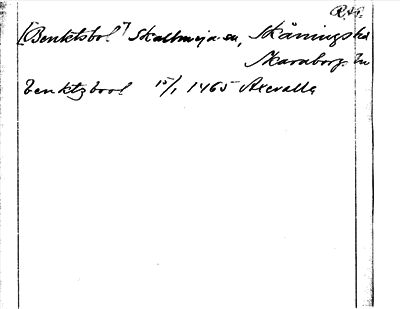 R.A.
[Benktsbol] Skallmeja sn, Skånings hd
Skaraborgs ln
benktzbool 15/1 1465 Axevalla